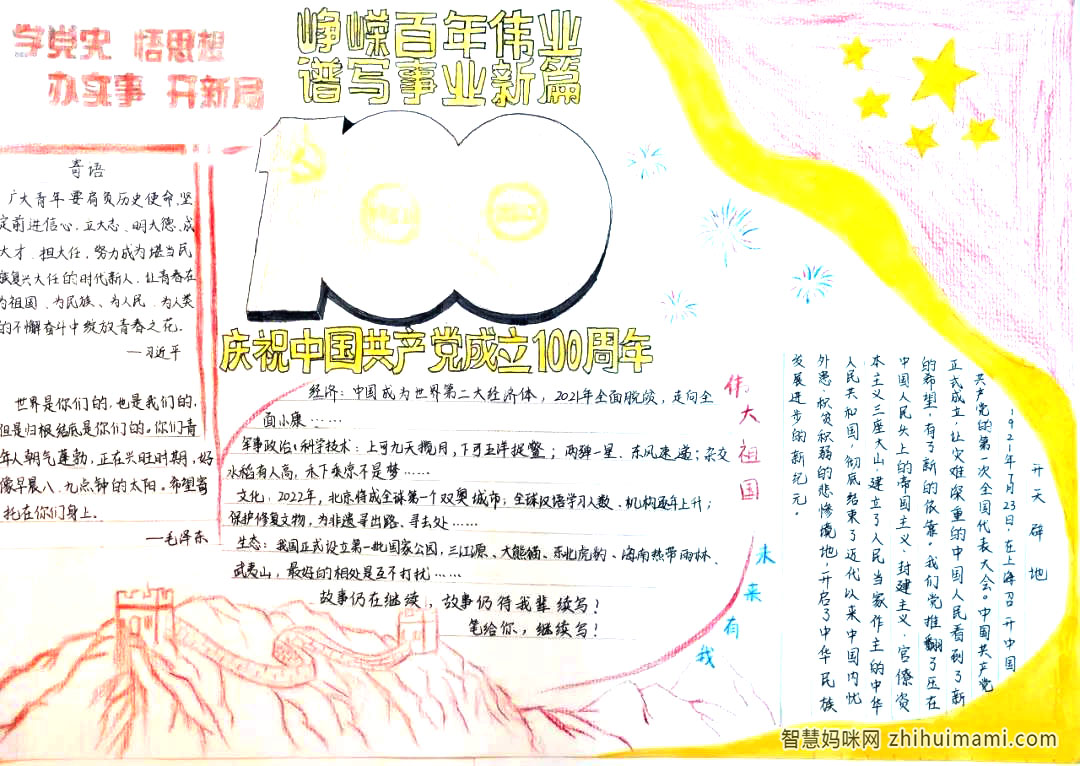 学党史 悟思想
办实事 开新局
峥嵘百年伟业
谱写事业新篇
100
庆祝中国共产党成立100周年
寄语
广大青年要肩负历史使命,坚
定前进信心,立大志、明大德、成
大才、担大任,努力成为堪当民
族复兴大任的时代新人,让青春在
为祖国、为民族、为人民、为人类
的不懈奋斗中绽放青春之花。
—习近平
世界是你们的,也是我们的,
但是归根结底是你们的。你们青
年人朝气蓬勃,正在兴旺时期,好
像早晨八、九点钟的太阳。希望寄
托在你们身上。
—毛泽东
经济:中国成为世界第二大经济体,2021年全面脱贫,走向全
面小康……
军事政治、科学技术:上可九天揽月,下可五洋捉鳖;两弹一星、东风速递;杂交
水稻有人高,禾下乘凉不是梦……
文化:2022年,北京将成全球第一个双奥城市;全球汉语学习人数、机构逐年上升;
保护修复文物,为非遗寻出路、寻去处……
生态:我国正式设立第一批国家公园,三江源、大熊猫、东北虎豹、海南热带雨林、
武夷山,最好的相处是互不打扰……
故事仍在继续,故事仍待我辈续写!
笔给你,继续写!
伟大祖国
未来有我
开天辟地
1921年7月23日,在上海召开中国
共产党的第一次全国代表大会。中国共产党
正式成立,让灾难深重的中国人民看到了新
的希望,有了新的依靠。我们党推翻了压在
中国人民头上的帝国主义、封建主义、官僚资
本主义三座大山,建立了人民当家作主的中华
人民共和国,彻底结束了近代以来中国内忧
外患、积贫积弱的悲惨境地,开启了中华民族
发展进步的新纪元。
智慧妈咪网 zhihuimami.com